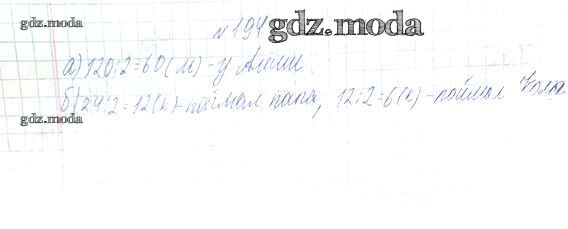 gdz.moda
№194
gdz.moda
gdz.moda
а) 120:2=60(м) - у Алёши
б) 24:2=12(к) - поймал папа, 12:2=6(к) - поймал Коля
gdz.moda
gdz.moda